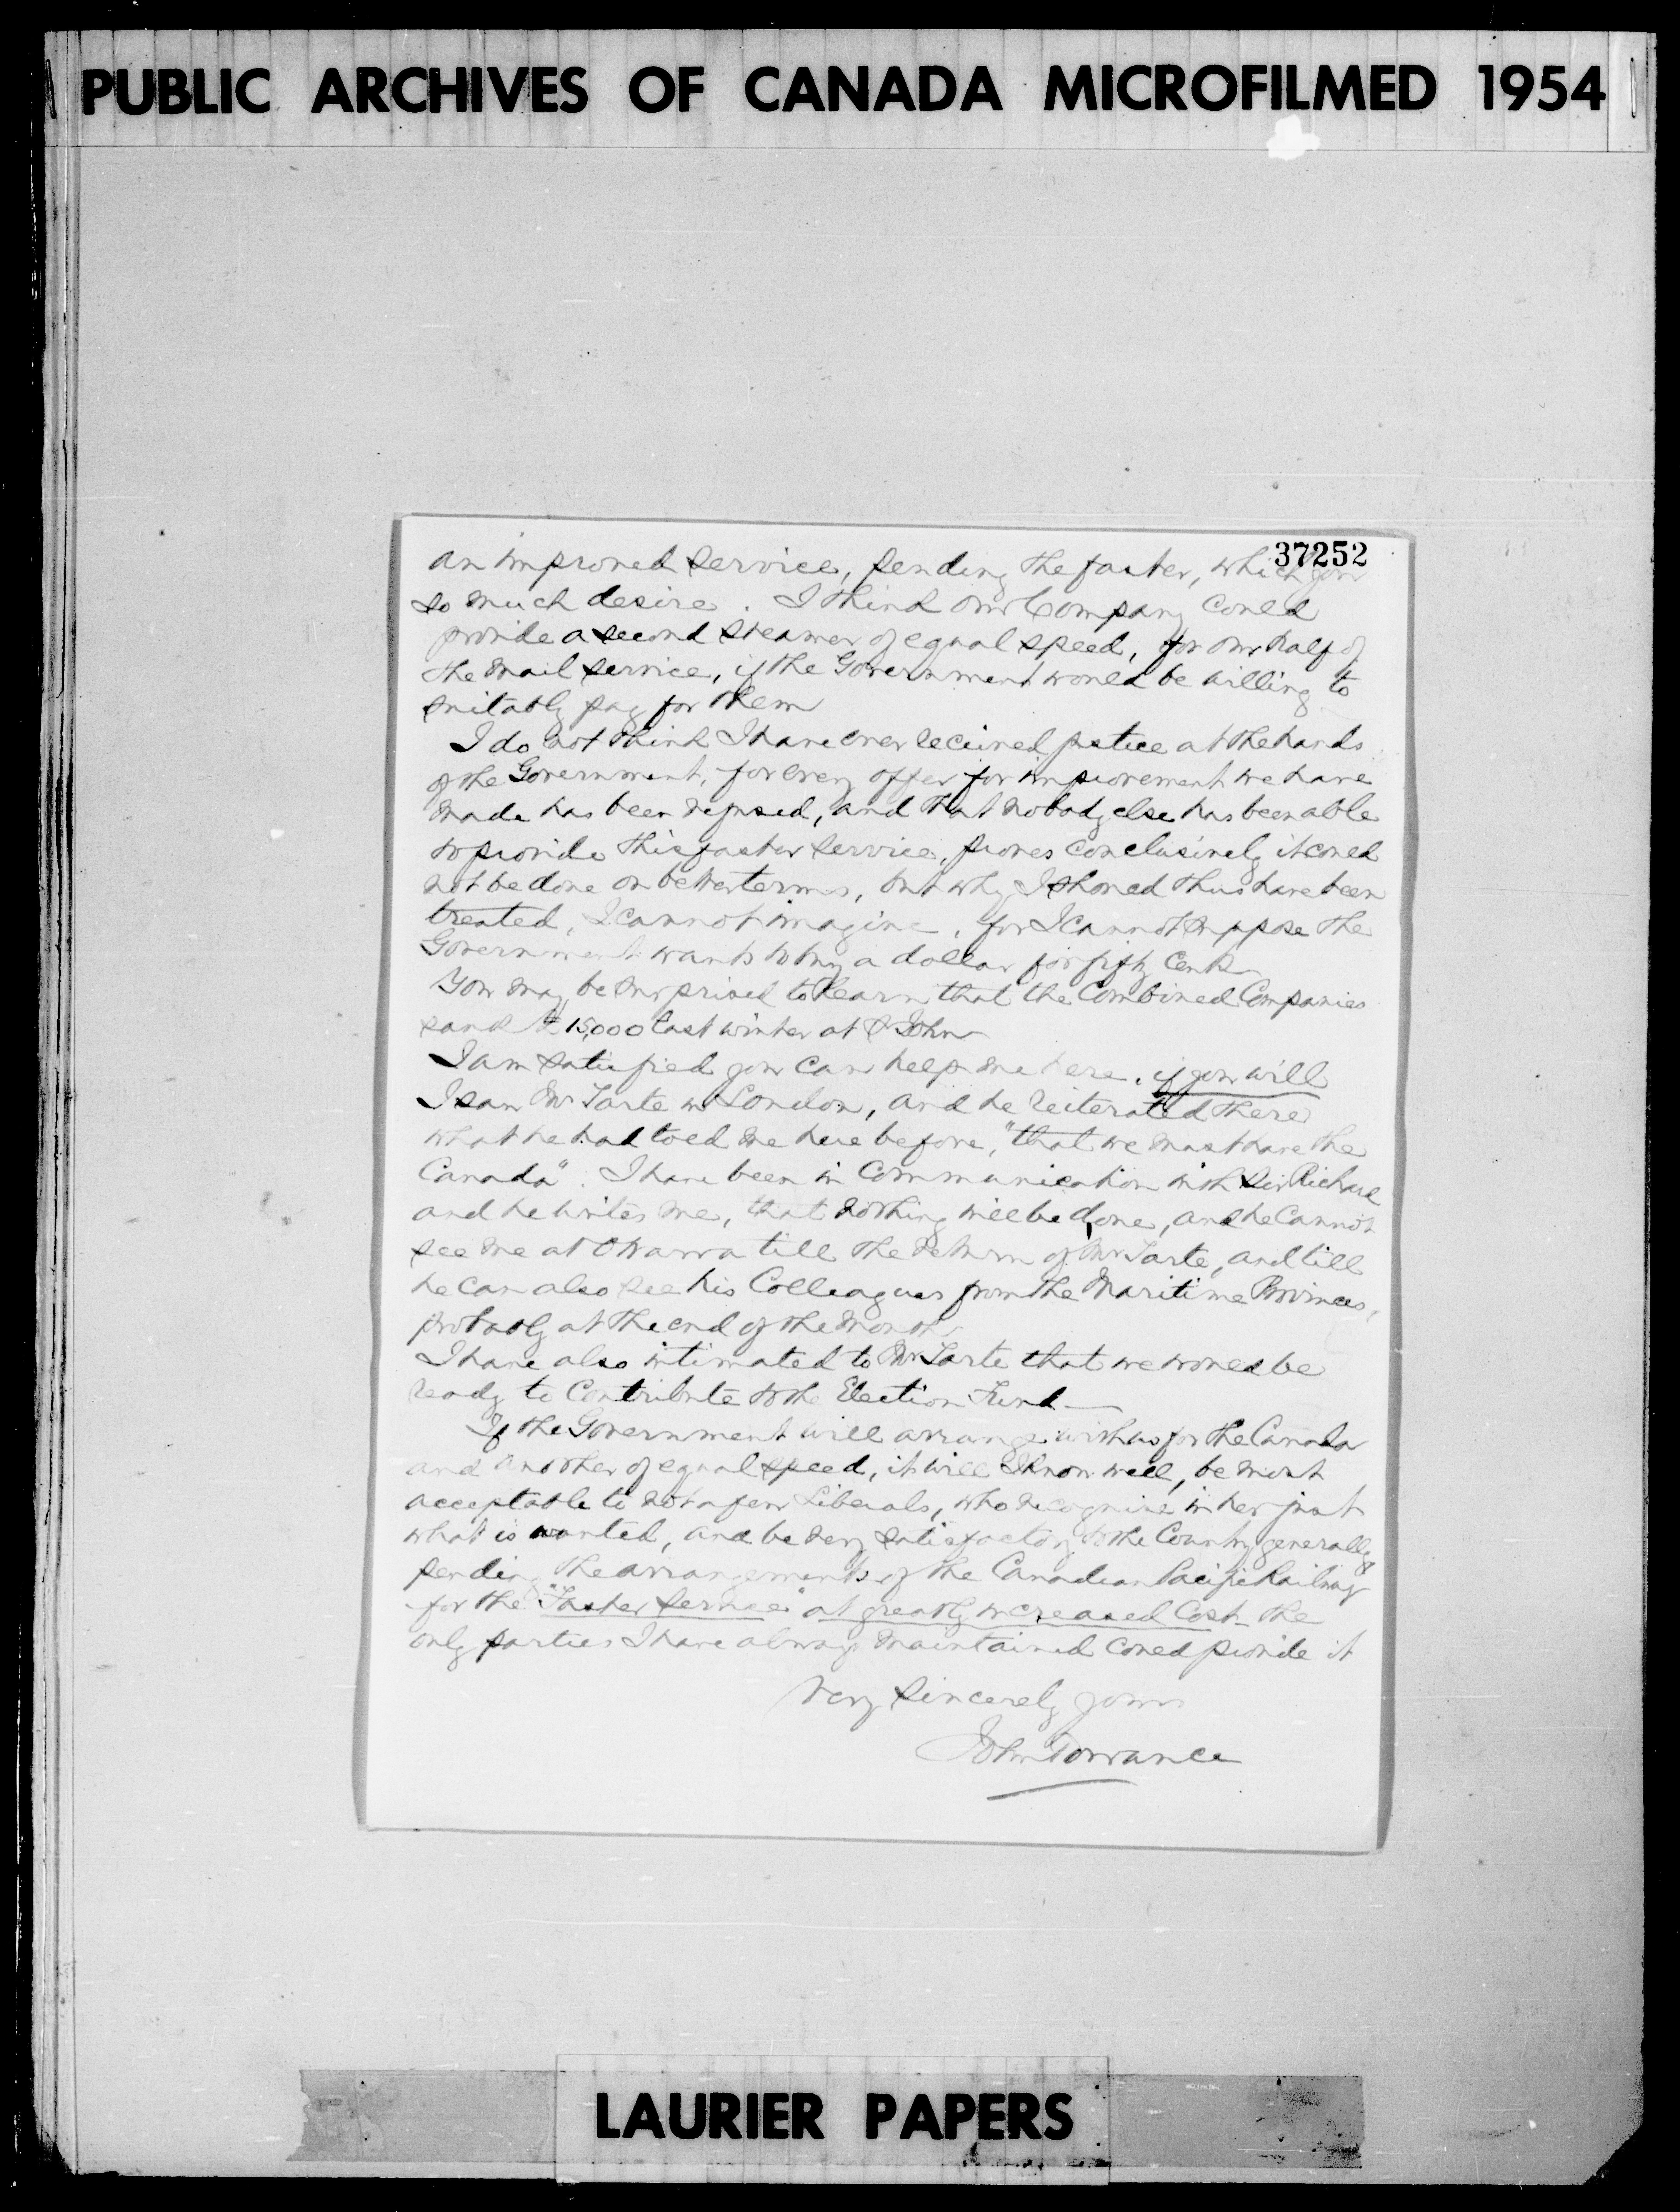 PUBLIC ARCHIVES OF CANADA MICROFILMED 1954
37252
an improved service, pending the faster, which you
so much desire. I think our Company could
provide a second steamer of equal speed, for our half of
the Mail service, if the Government would be willing to
suitably pay for them
I do not think I have ever received justice at the hands
of the Government, for every offer for improvement we have
made has been refused, and that nobody else has been able
to provide this faster service, proves conclusively it could
not be done on better terms, but why I should thus have been
treated, I cannot imagine, for I cannot suppose the
Government wants to buy a dollar for fifty cents
You may be surprised to learn that the Combined Companies
sank £15,000 last winter at St John
I am satisfied you can help me here, if you will
I saw Mr Tarte in London, and he reiterated there
what he had told me here before, "that we must have the
Canada". I have been in Communication with Sir Richard
and he writes me, that nothing will be done, and he cannot
see me at Ottawa till the return of Mr Tarte, and till
he can also see his Colleagues from the Maritime Provinces,
probably at the end of the month
I have also intimated to Mr Tarte that we would be
ready to Contribute to the Election Fund —
If the Government will arrange with us for the Canada
and another of equal speed, it will I know well, be most
acceptable to not a few Liberals, who recognise in her just
what is wanted, and be very satisfactory to the Country generally
pending the arrangements of the Canadian Pacific Railway
for the "Faster Service" at greatly increased Cost - the
only parties I have always maintained could provide it
Very sincerely yours
John Torrance
LAURIER PAPERS